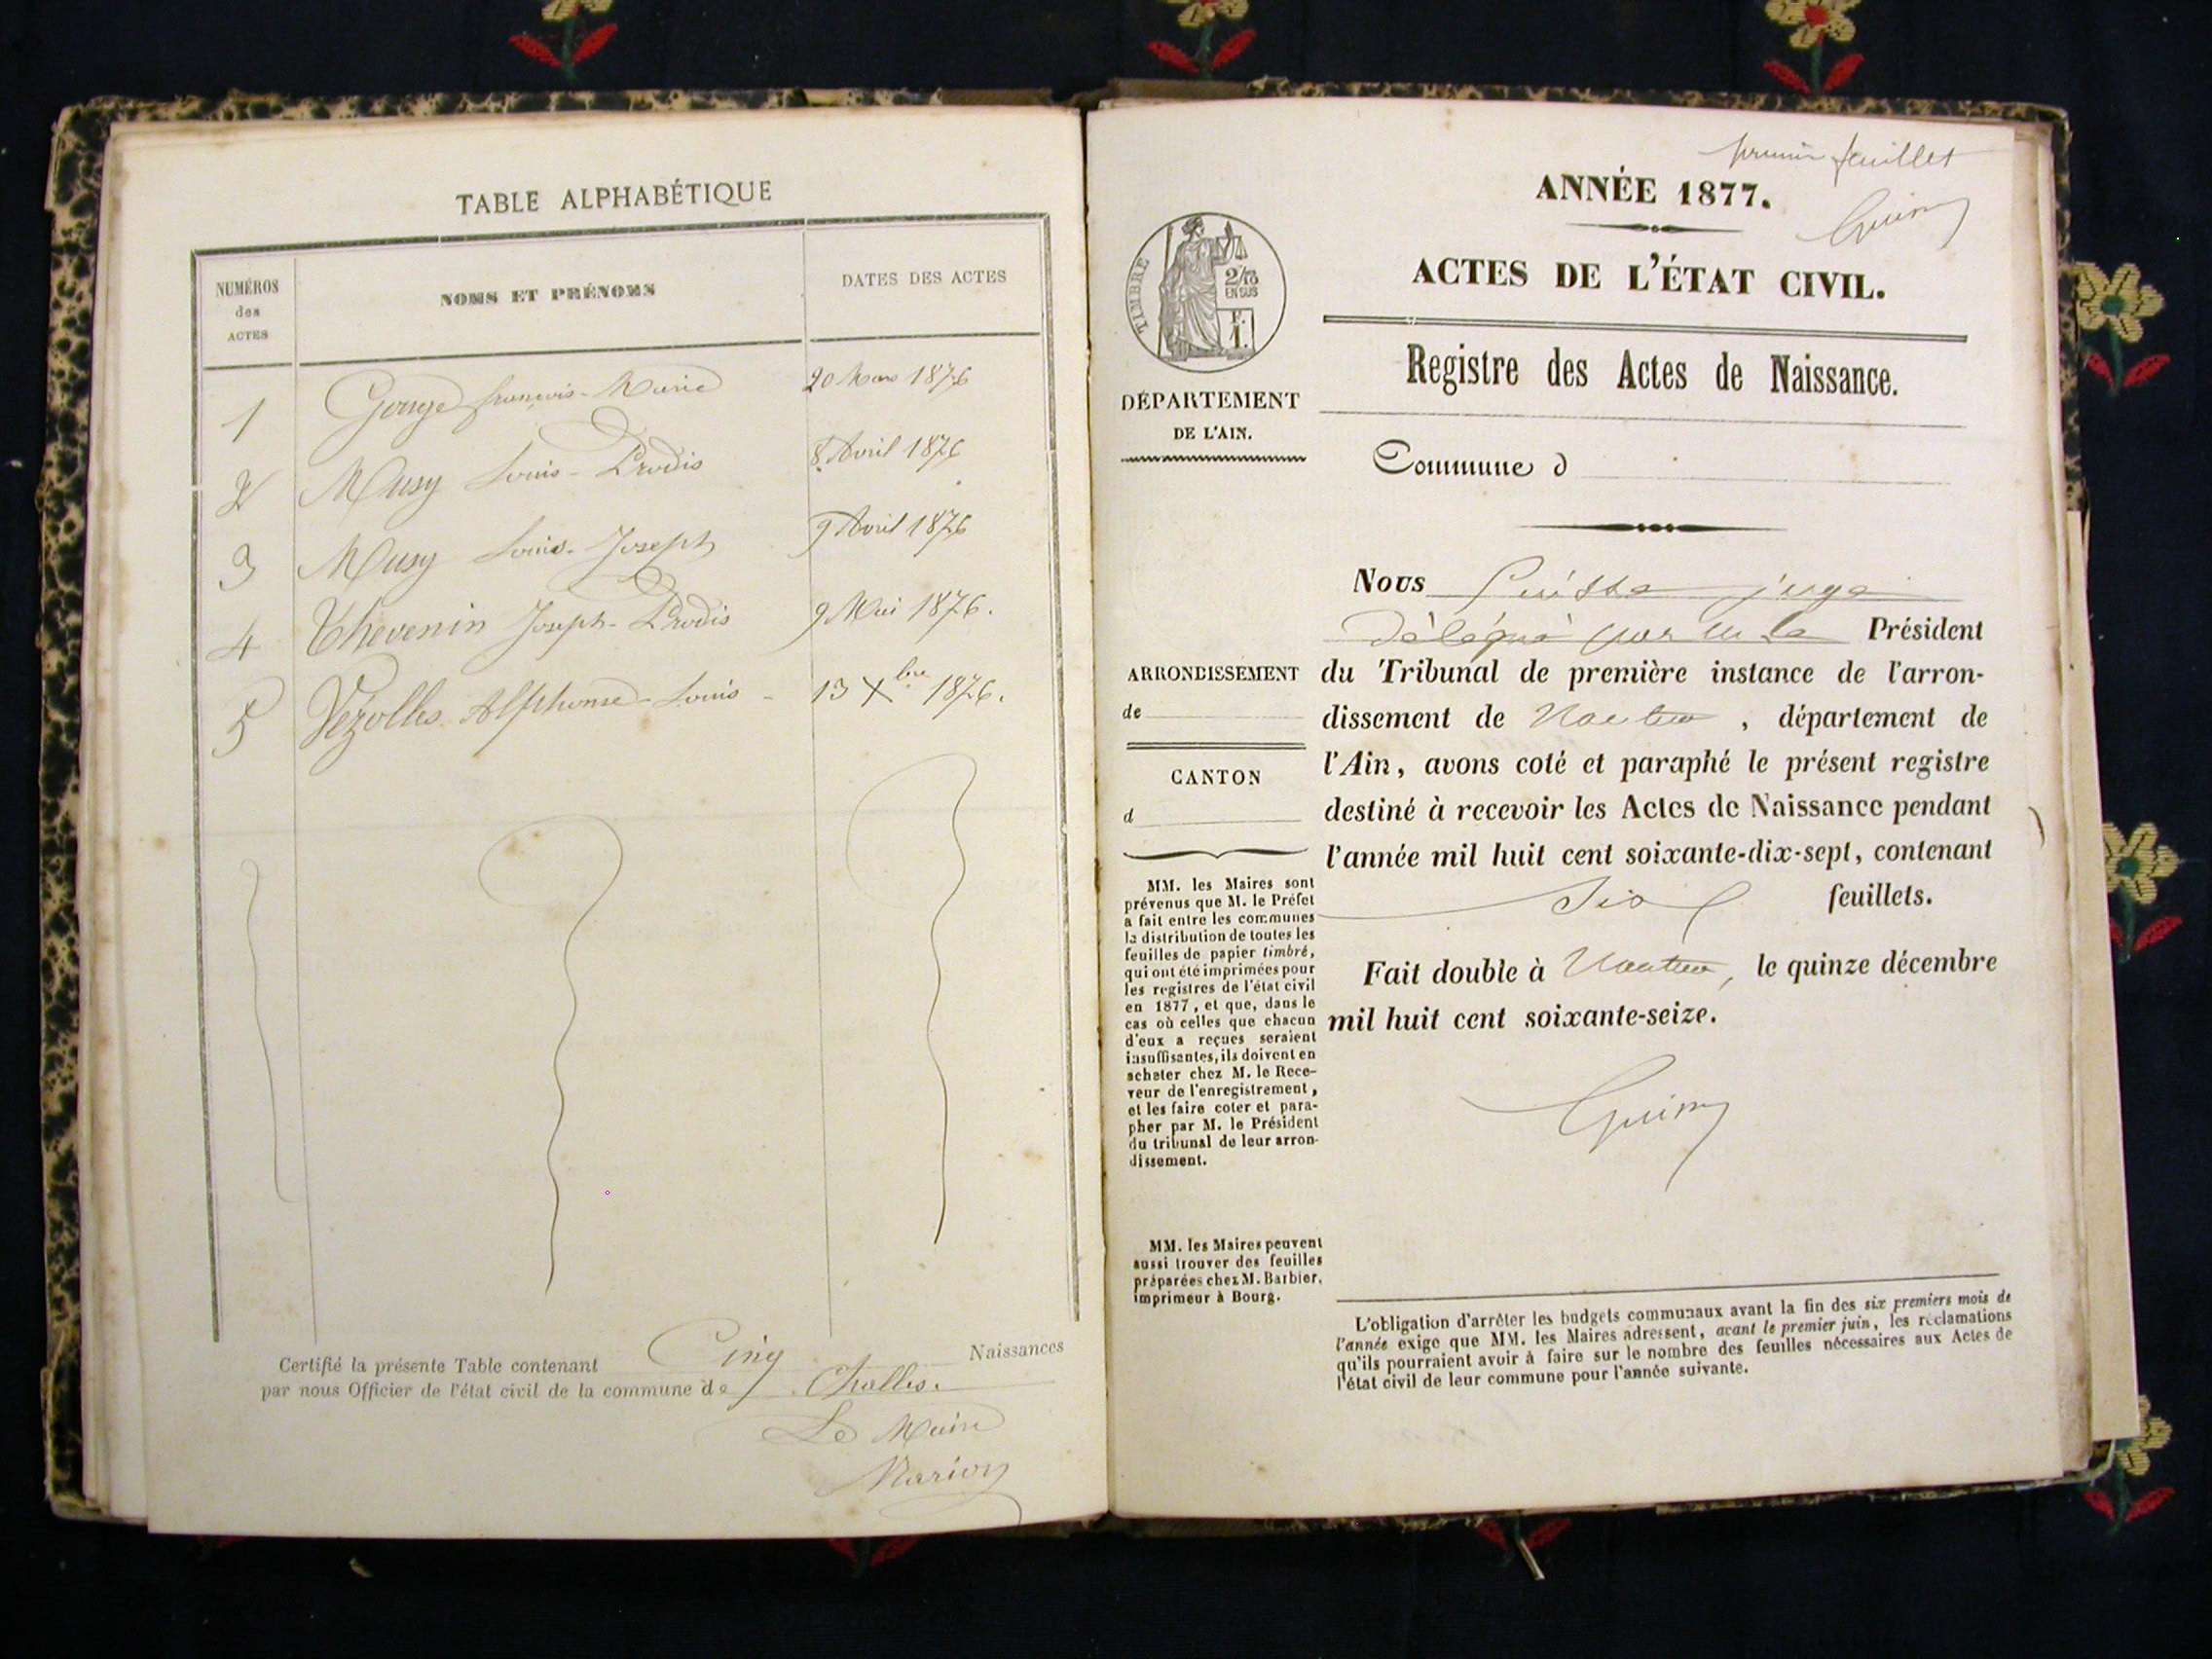 TABLE ALPHABÉTIQUE
NUMÉROS
des
ACTES
NOMS ET PRÉNOMS
DATES DES ACTES
1 Gouge françois-Marie 20 Mars 1876
2 Musy Louis- 8 Avril 1876
3 Musy Louis-Joseph 9 Avril 1876
4 Thevenin Joseph- 9 Mai 1876.
5 Vezolles Alphonse-Louis - 13 Xbre 1876.
Certifié la présente Table contenant Cinq Naissances
par nous Officier de l'état civil de la commune de Challes.
Le Maire
Marion
premier feuillet
ANNÉE 1877.
ACTES DE L'ÉTAT CIVIL.
TIMBRE
2/10
EN SUS
F.
1.
Registre des Actes de Naissance.
DÉPARTEMENT
DE L'AIN.
Commune d
Nous juge
Délégué par Président
ARRONDISSEMENT
de
du Tribunal de première instance de l'arron-
dissement de Nantua, département de
l'Ain, avons coté et paraphé le présent registre
destiné à recevoir les Actes de Naissance pendant
l'année mil huit cent soixante-dix-sept, contenant
Six feuillets.
Fait double à Nantua, le quinze décembre
mil huit cent soixante-seize.
CANTON
d
MM. les Maires sont
prévenus que M. le Préfet
a fait entre les communes
la distribution de toutes les
feuilles de papier timbré,
qui ont été imprimées pour
les registres de l'état civil
en 1877, et que, dans le
cas où celles que chacun
d'eux a reçues seraient
insuffisantes, ils doivent en
acheter chez M. le Rece-
veur de l'enregistrement,
et les faire coter et para-
pher par M. le Président
du tribunal de leur arron-
dissement.
MM. les Maires peuvent
aussi trouver des feuilles
préparées chez M. Barbier,
imprimeur à Bourg.
L'obligation d'arrêter les budgets communaux avant la fin des six premiers mois de
l'année exige que MM. les Maires adressent, avant le premier juin, les réclamations
qu'ils pourraient avoir à faire sur le nombre des feuilles nécessaires aux Actes de
l'état civil de leur commune pour l'année suivante.